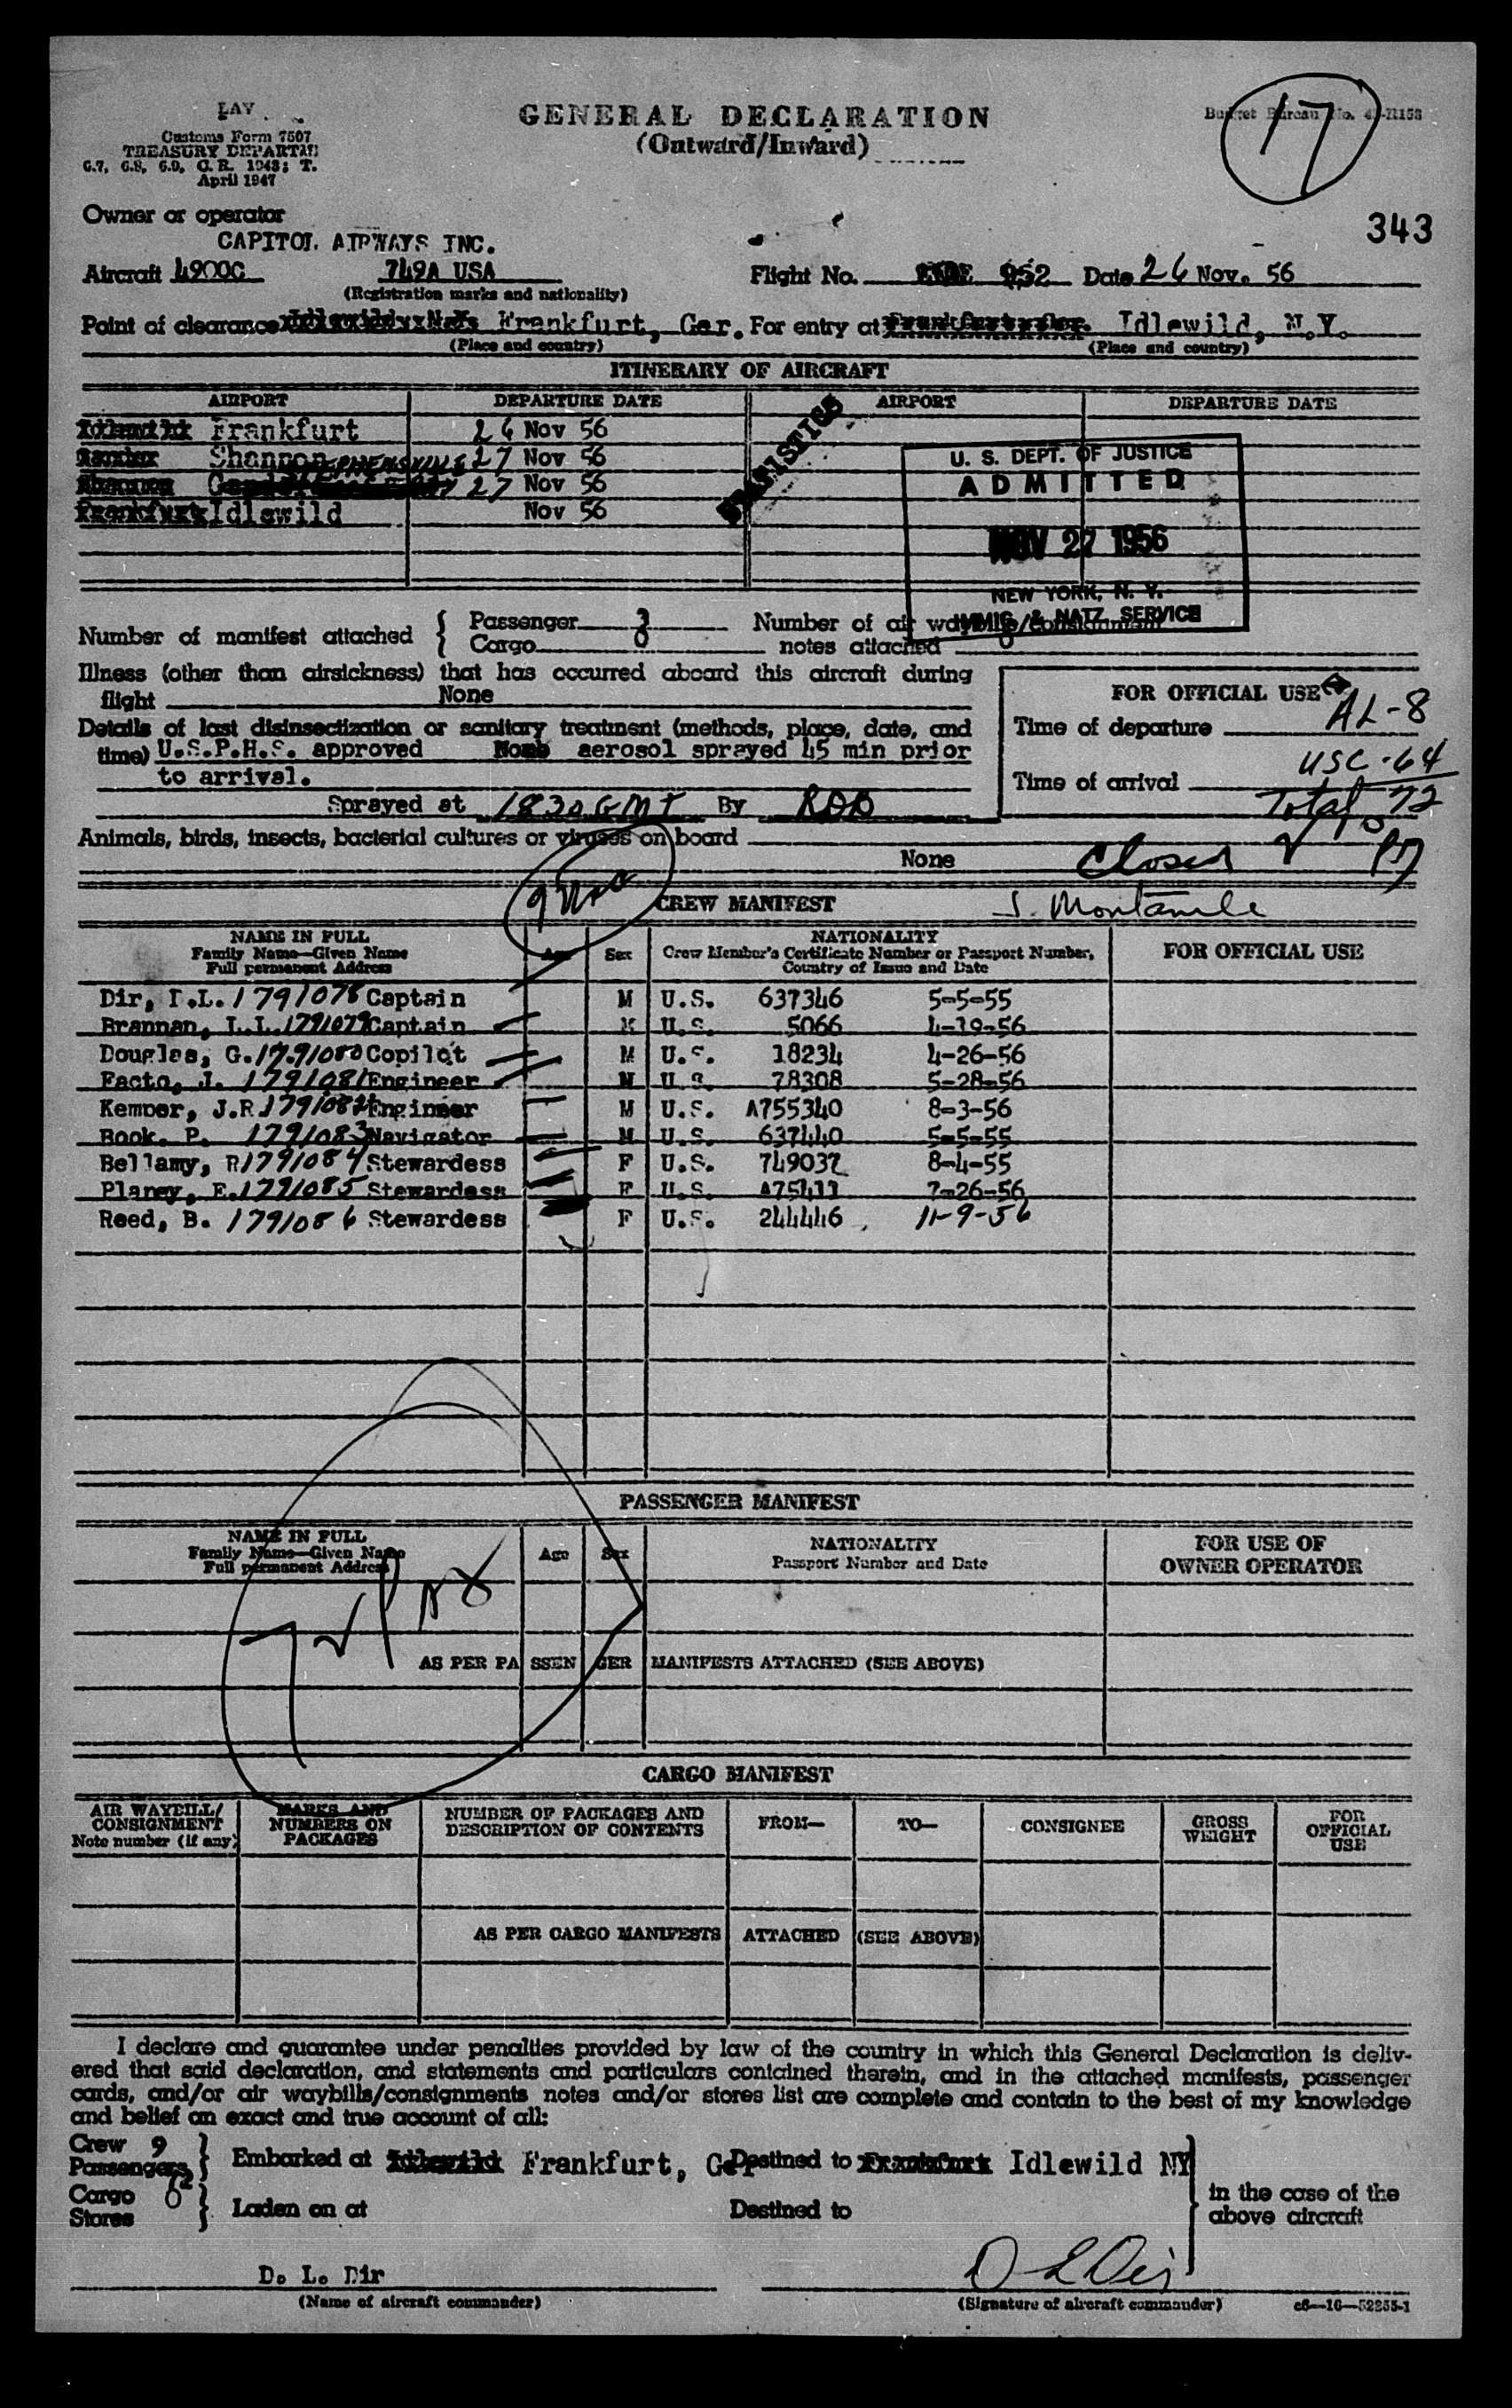 LAV
Customs Form 7507
TREASURY DEPARTM
6.7, 6.8, 6.9, C. R. 1943; T.
April 1947
GENERAL DECLARATION
(Outward/Inward)
17
343
Owner or operator
CAPITOL AIRWAYS INC.
Aircraft 4900C 749A USA Flight No. 952 Date 26 Nov. 56
(Registration marks and nationality)
Point of clearance Idlewild, N.Y. Frankfurt, Ger. For entry at Frankfurt, Ger. Idlewild, N.Y.
(Place and country) (Place and country)
ITINERARY OF AIRCRAFT
AIRPORT DEPARTURE DATE AIRPORT DEPARTURE DATE
Idlewild Frankfurt 26 Nov 56
Gander Shannon 27 Nov 56
Shannon STEPHENSVILLE 27 Nov 56
Frankfurt Idlewild Nov 56
STATISTICS
U. S. DEPT. OF JUSTICE
ADMITTED
NOV 27 1956
NEW YORK, N. Y.
IMMIG. & NATZ. SERVICE
Number of manifest attached { Passenger 3 Number of air waybills/consignment
Cargo 0 notes attached 0
Illness (other than airsickness) that has occurred aboard this aircraft during
flight None
Details of last disinsectization or sanitary treatment (methods, place, date, and
time) U.S.P.H.S. approved None aerosol sprayed 45 min prior
to arrival.
Sprayed at 1830 GMT By RDB
FOR OFFICIAL USE
Time of departure AL-8
USC-64
Time of arrival Total 72
Animals, birds, insects, bacterial cultures or viruses on board
None Closed
CREW MANIFEST
NAME IN FULL
Family Name—Given Name
Full permanent Address
Age Sex
NATIONALITY
Crew Member's Certificate Number or Passport Number,
Country of Issue and Date
FOR OFFICIAL USE
Dir, D.L. 1791078 Captain M U.S. 637346 5-5-55
Brannan, L.L. 1791079 Captain M U.S. 5066 4-19-56
Douglas, G. 1791080 Copilot M U.S. 18234 4-26-56
Facto, J. 1791081 Engineer M U.S. 78308 5-28-56
Kemper, J.R. 1791082 Engineer M U.S. A755340 8-3-56
Book, P. 1791083 Navigator M U.S. 637440 5-5-55
Bellamy, R 1791084 Stewardess F U.S. 749032 8-4-55
Planey, E. 1791085 Stewardess F U.S. A75411 7-26-56
Reed, B. 1791086 Stewardess F U.S. 244446 11-9-56
PASSENGER MANIFEST
NAME IN FULL
Family Name—Given Name
Full permanent Address
Age Sex
NATIONALITY
Passport Number and Date
FOR USE OF
OWNER OPERATOR
AS PER PASSENGER MANIFESTS ATTACHED (SEE ABOVE)
CARGO MANIFEST
AIR WAYBILL/
CONSIGNMENT
Note number (if any)
MARKS AND
NUMBERS ON
PACKAGES
NUMBER OF PACKAGES AND
DESCRIPTION OF CONTENTS
FROM— TO— CONSIGNEE
GROSS
WEIGHT
FOR
OFFICIAL
USE
AS PER CARGO MANIFESTS ATTACHED (SEE ABOVE)
I declare and guarantee under penalties provided by law of the country in which this General Declaration is deliv-
ered that said declaration, and statements and particulars contained therein, and in the attached manifests, passenger
cards, and/or air waybills/consignments notes and/or stores list are complete and contain to the best of my knowledge
and belief an exact and true account of all:
Crew 9
Passengers } Embarked at Idlewild Frankfurt, Ger Destined to Frankfurt Idlewild NY
Cargo 0
Stores } Laden on at Destined to
in the case of the
above aircraft
D. L. Dir D L Dir
(Name of aircraft commander) (Signature of aircraft commander) c6—16—52255-1